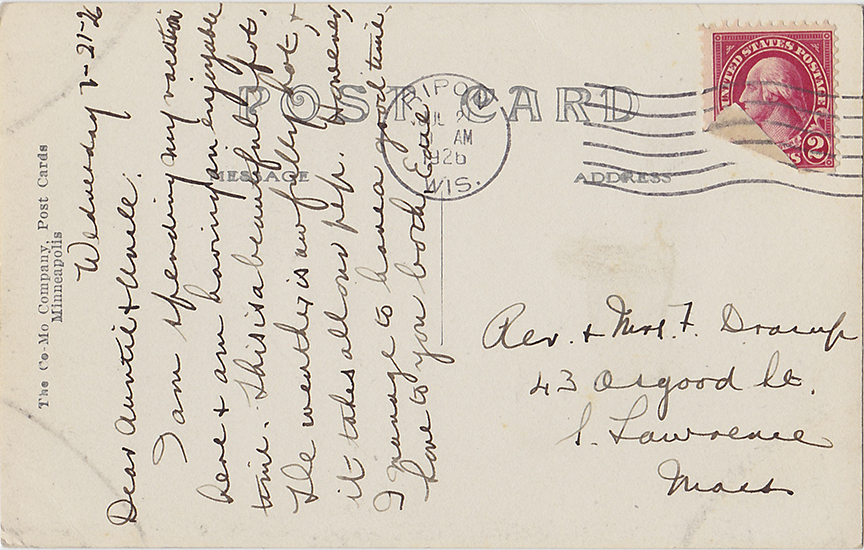 POST CARD
MESSAGE
ADDRESS
The Co-Mo Company, Post Cards
Minneapolis
UNITED STATES POSTAGE
2
RIPON
JUL 2
AM
1926
WIS.
Wednesday 7-21-26
Dear Auntie & Uncle:
I am spending my vacation
here & am having an enjoyable
time. This is a beautiful spot.
The weather is awfully hot, &
it takes all our pep. However,
I manage to have a good time.
Love to you both,
Rev. & Mrs. F.
43 Osgood St.
S. Lawrence
Mass.